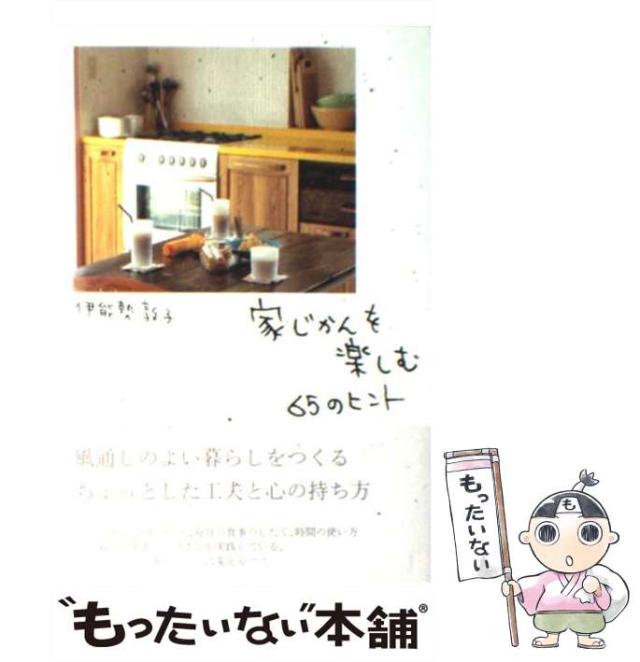 伊能勢敦子
家じかんを
楽しむ
65のヒント
風通しのよい暮らしをつくる
ちょっとした工夫と心の持ち方
食事のしたく、時間の使い方
実践している。
もったいない
も
"もったいない"本舗®